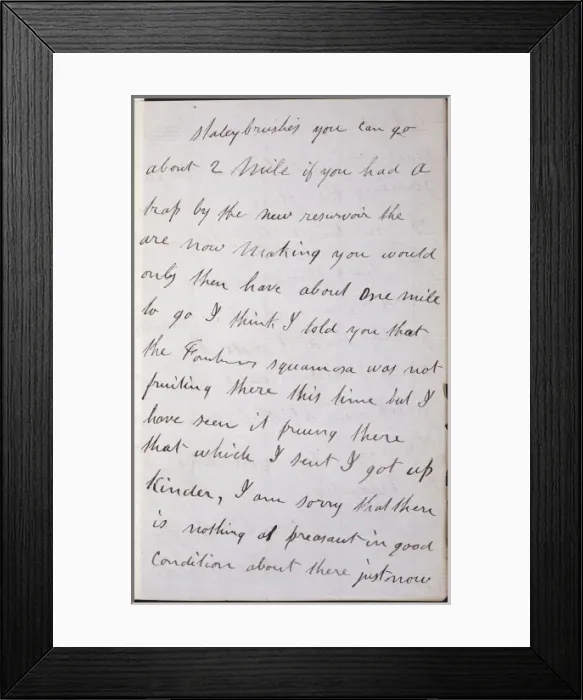 staleybrushes you can go
about 2 Mile if you had a
trap by the new reservoir the
are now Making you would
only then have about One mile
to go I think I told you that
the squamosa was not
fruiting there this time but I
have seen it there
that which I sent I got up
Kinder, I am sorry that there
is nothing at preasant in good
Condition about there just now